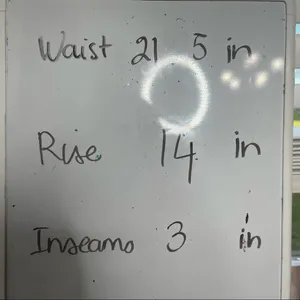 Waist 21 5 in
Rise 14 in
Inseams 3 in